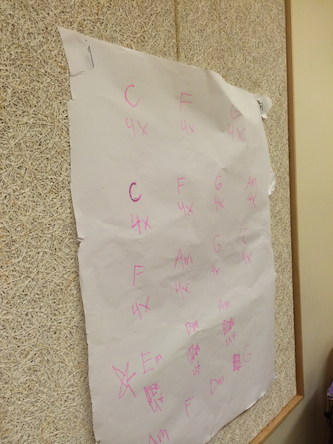 C F G
4x 4x 4x
C F G Am
4x 4x 4x 4x
F Am G
4x 4x 4x
Em Dm Am
F Dm G
Am